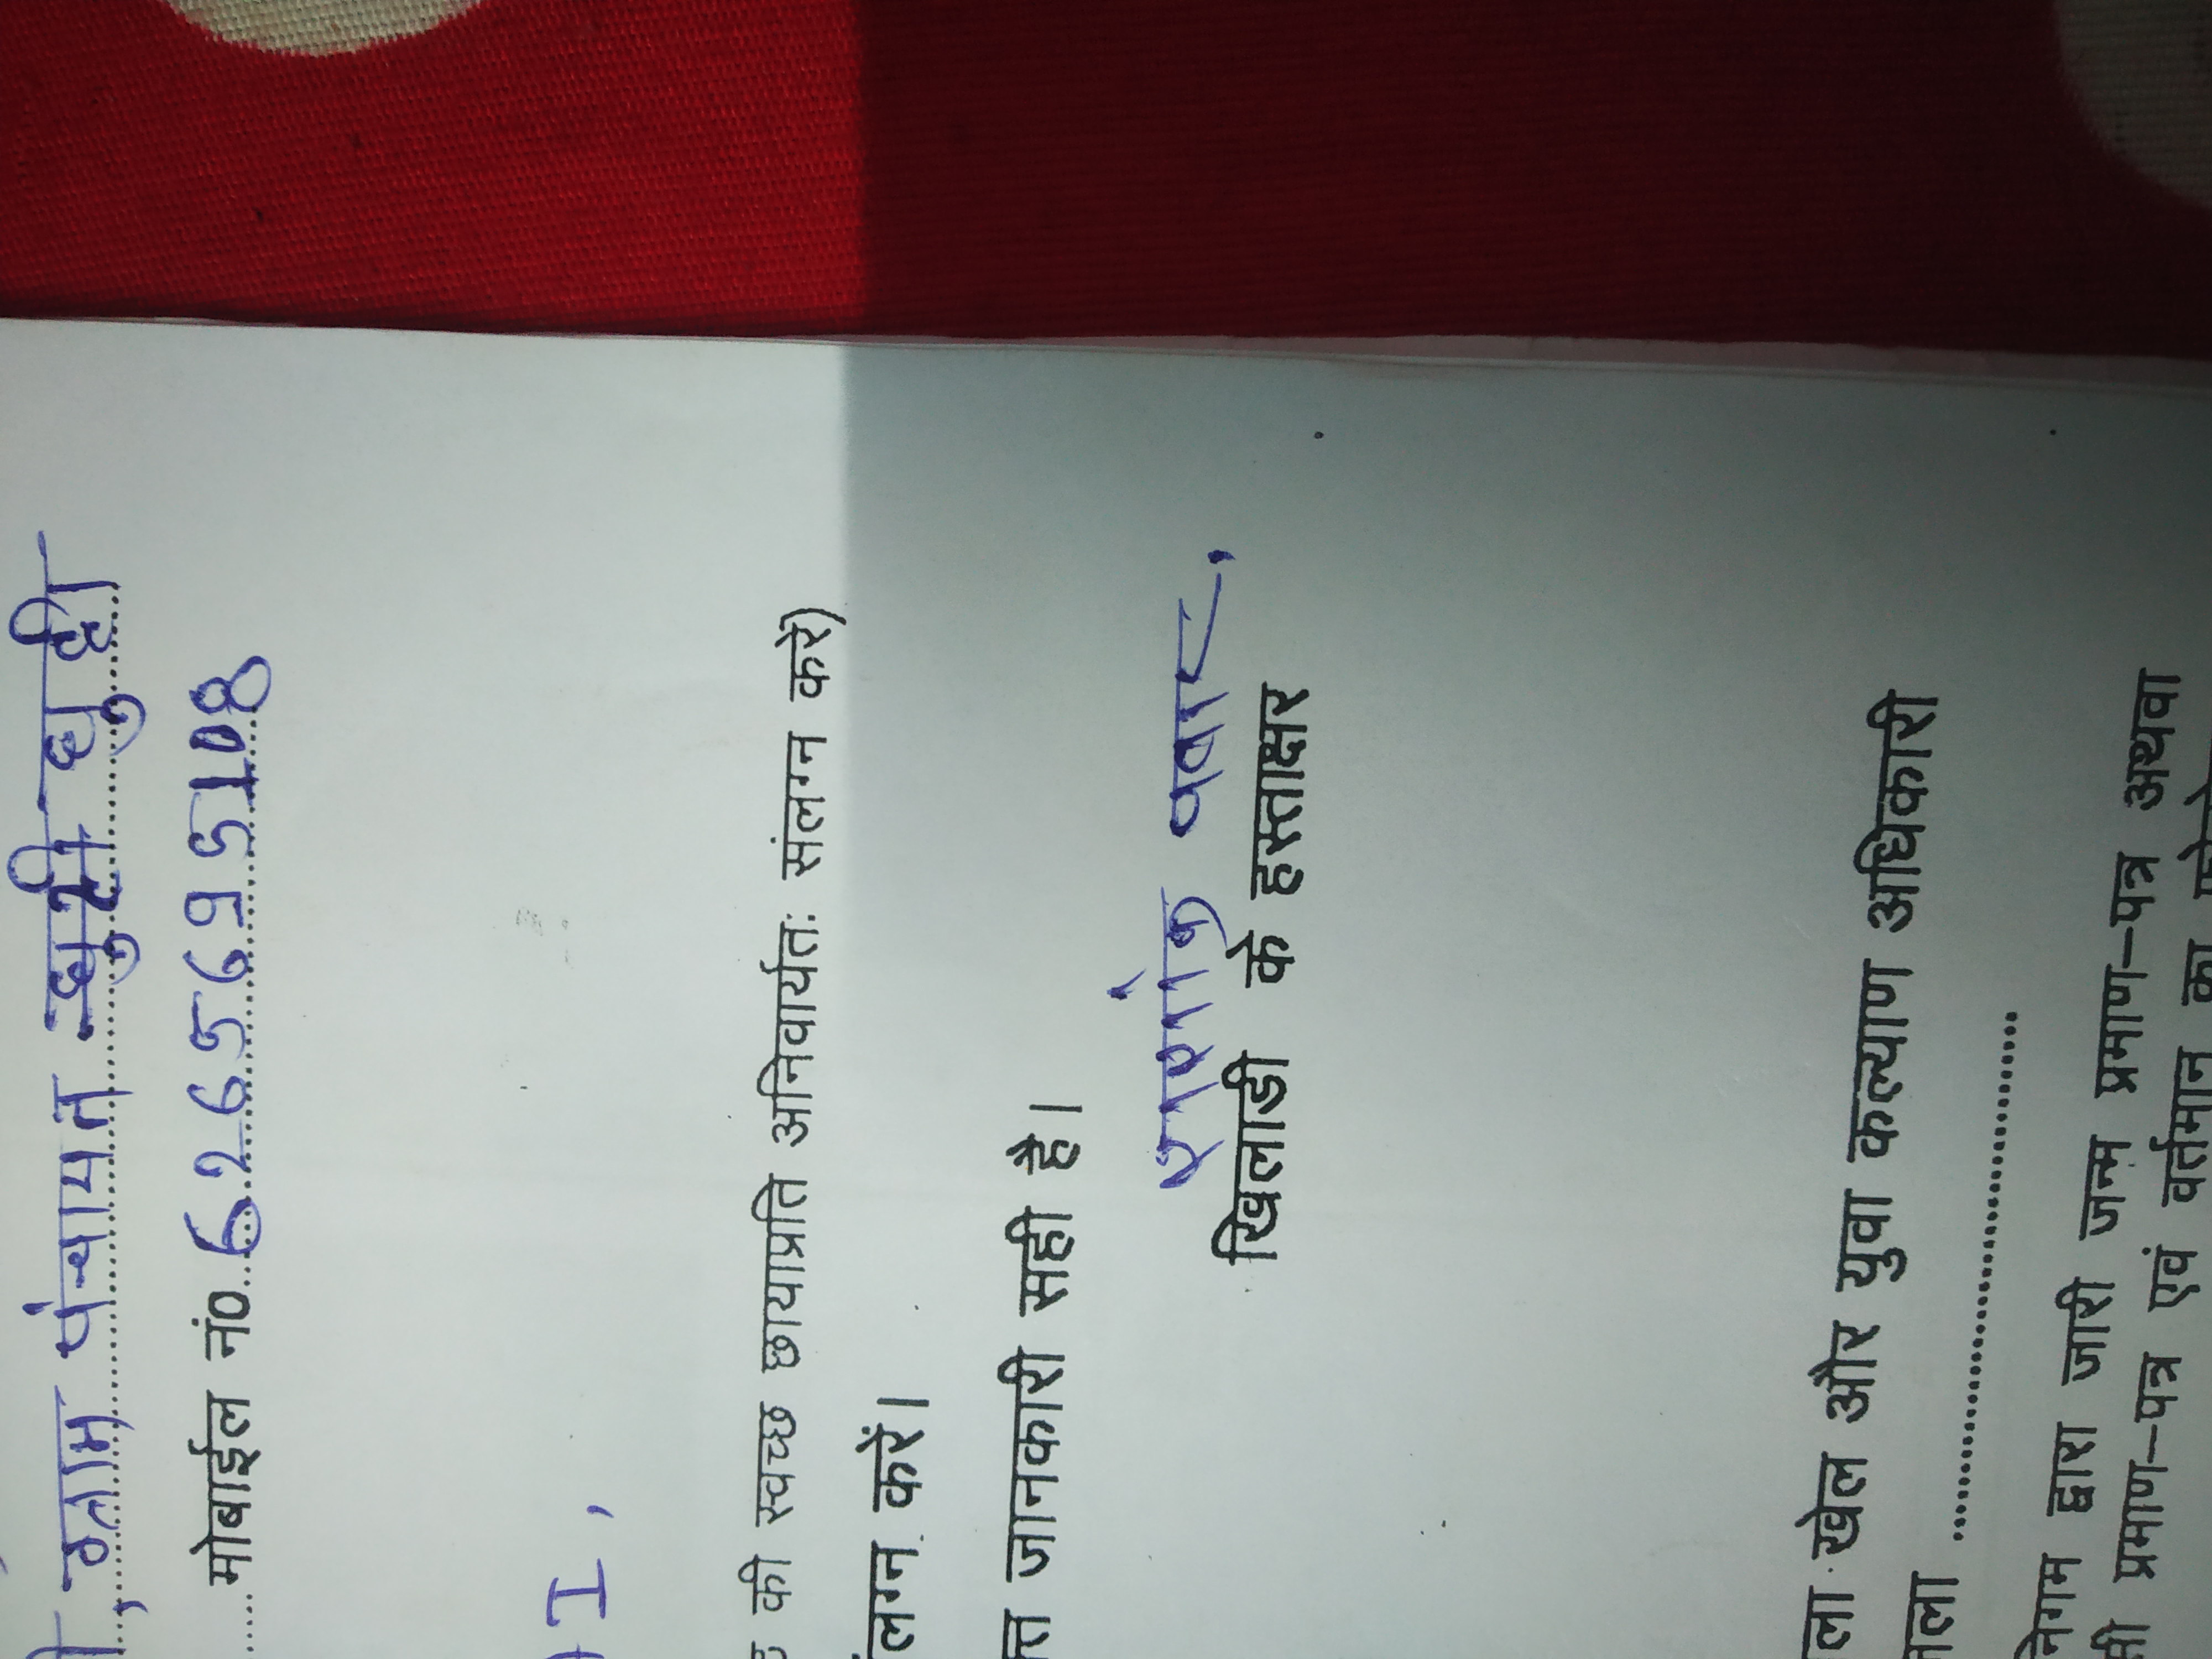 ग्राम पंचायत घुघरी घुघरी
मोबाईल नं0 6265695108
I,
की स्वच्छ छायाप्रति अनिवार्यतः संलग्न करें)
लग्न करें।
त जानकारी सही है।
पवार
खिलाडी के हस्ताक्षर
ला खेल और युवा कल्याण अधिकारी
ला ..............................
निगम द्वारा जारी जन्म प्रमाण-पत्र अथवा
प्रमाण-पत्र एवं वर्तमान का